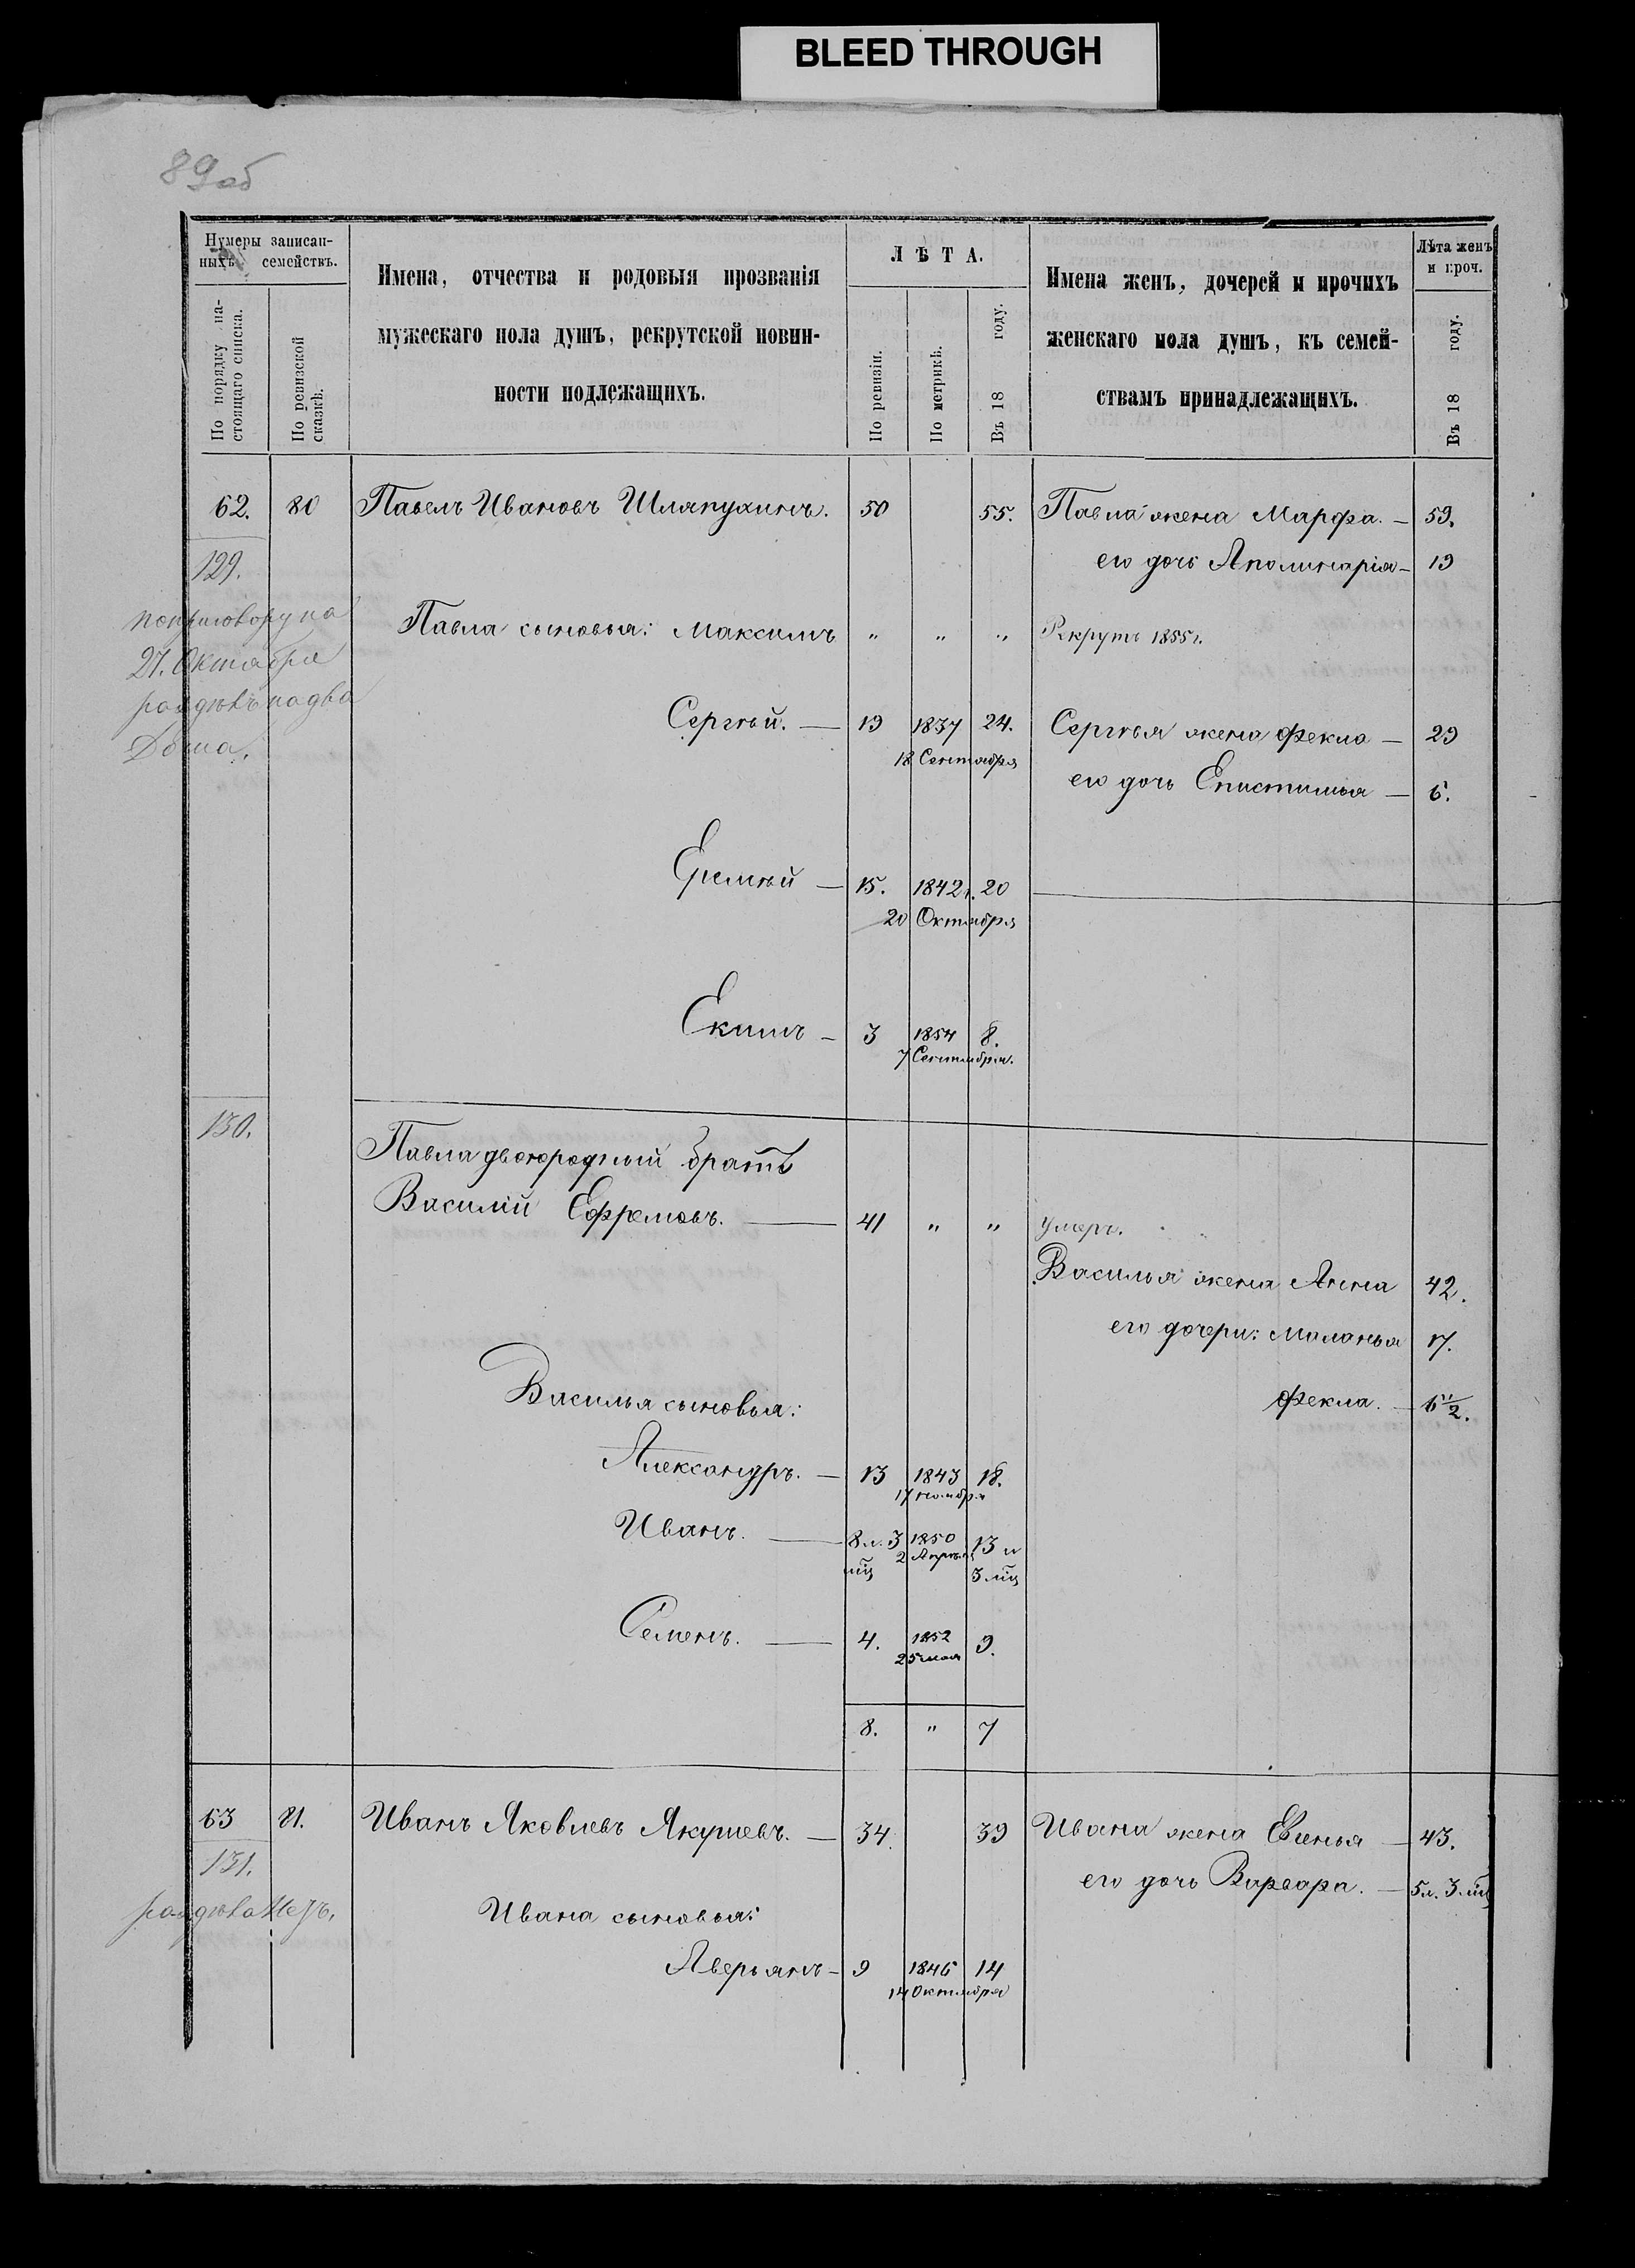 BLEED THROUGH
89 об
Нумеры записан-
ныхъ семействъ.
По порядку на-
стоящаго списка.
По ревизской
сказкѣ.
Имена, отчества и родовыя прозванія
мужескаго пола душъ, рекрутской повин-
ности подлежащихъ.
ЛѢТА.
По ревизіи.
По метрикѣ.
Въ 18 году.
Имена женъ, дочерей и прочихъ
женскаго пола душъ, къ семей-
ствамъ принадлежащихъ.
Лѣта женъ
и проч.
Въ 18 году.
62. 80 Павелъ Ивановъ Шляпухинъ. 50 55. Павла жена Марфа. — 59.
129. его дочь Аполинарія — 19
по приговору на
27. Октября
раздѣлъ на два
Дома.
Павла сыновья: Максимъ " " " Рекрутъ 1855 г.
Сергѣй. — 19 1837 24. Сергѣя жена Фекла — 29
18 Сентября
его дочь Епистимья — 6.
Еремѣй — 15. 1842 г. 20
20 Октября
Екимъ — 3 1854 8.
7 Сентября.
130.
Павла двоюродный братъ
Василій Ефремовъ. — 41 " " умеръ.
Василья жена Анна 42.
его дочери: Маланья 17.
Василья сыновья: Фекла. —
Александръ. — 13 1843 18.
17 ноября
Иванъ. — 8 л. 3 1850 13 л
мц 2 Апрѣля 3 мц
Семенъ. — 4. 1852 9.
25 мая
8. " 7
63 81. Иванъ Яковлевъ Якушевъ. — 34. 39 Ивана жена Евгенья — 43.
131. его дочь Варвара. — 5 л. 3 мц
Ивана сыновья:
Аверьянъ — 9 1846 14
14 Октября